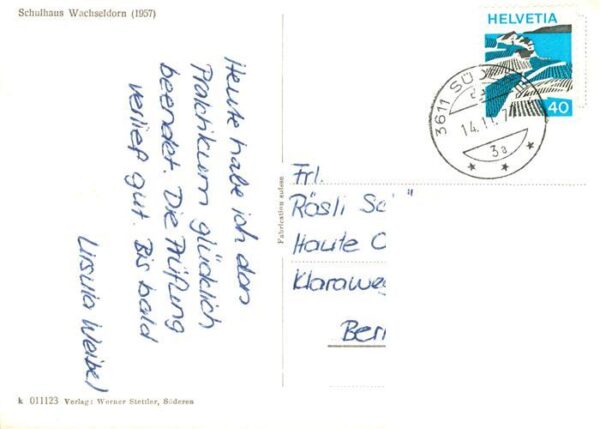 Schulhaus Wachseldorn (1957)
HELVETIA
40
3611 SÜ
14.11.7
3a
Heute habe ich das
Praktikum glücklich
beendet. Die Prüfung
verlief gut. Bis bald
Ursula Weibel
Fabrication suisse
Frl.
Rösli Sc
Haute C
Klarawe
Ber
k 011123 Verlag: Werner Stettler, Süderen